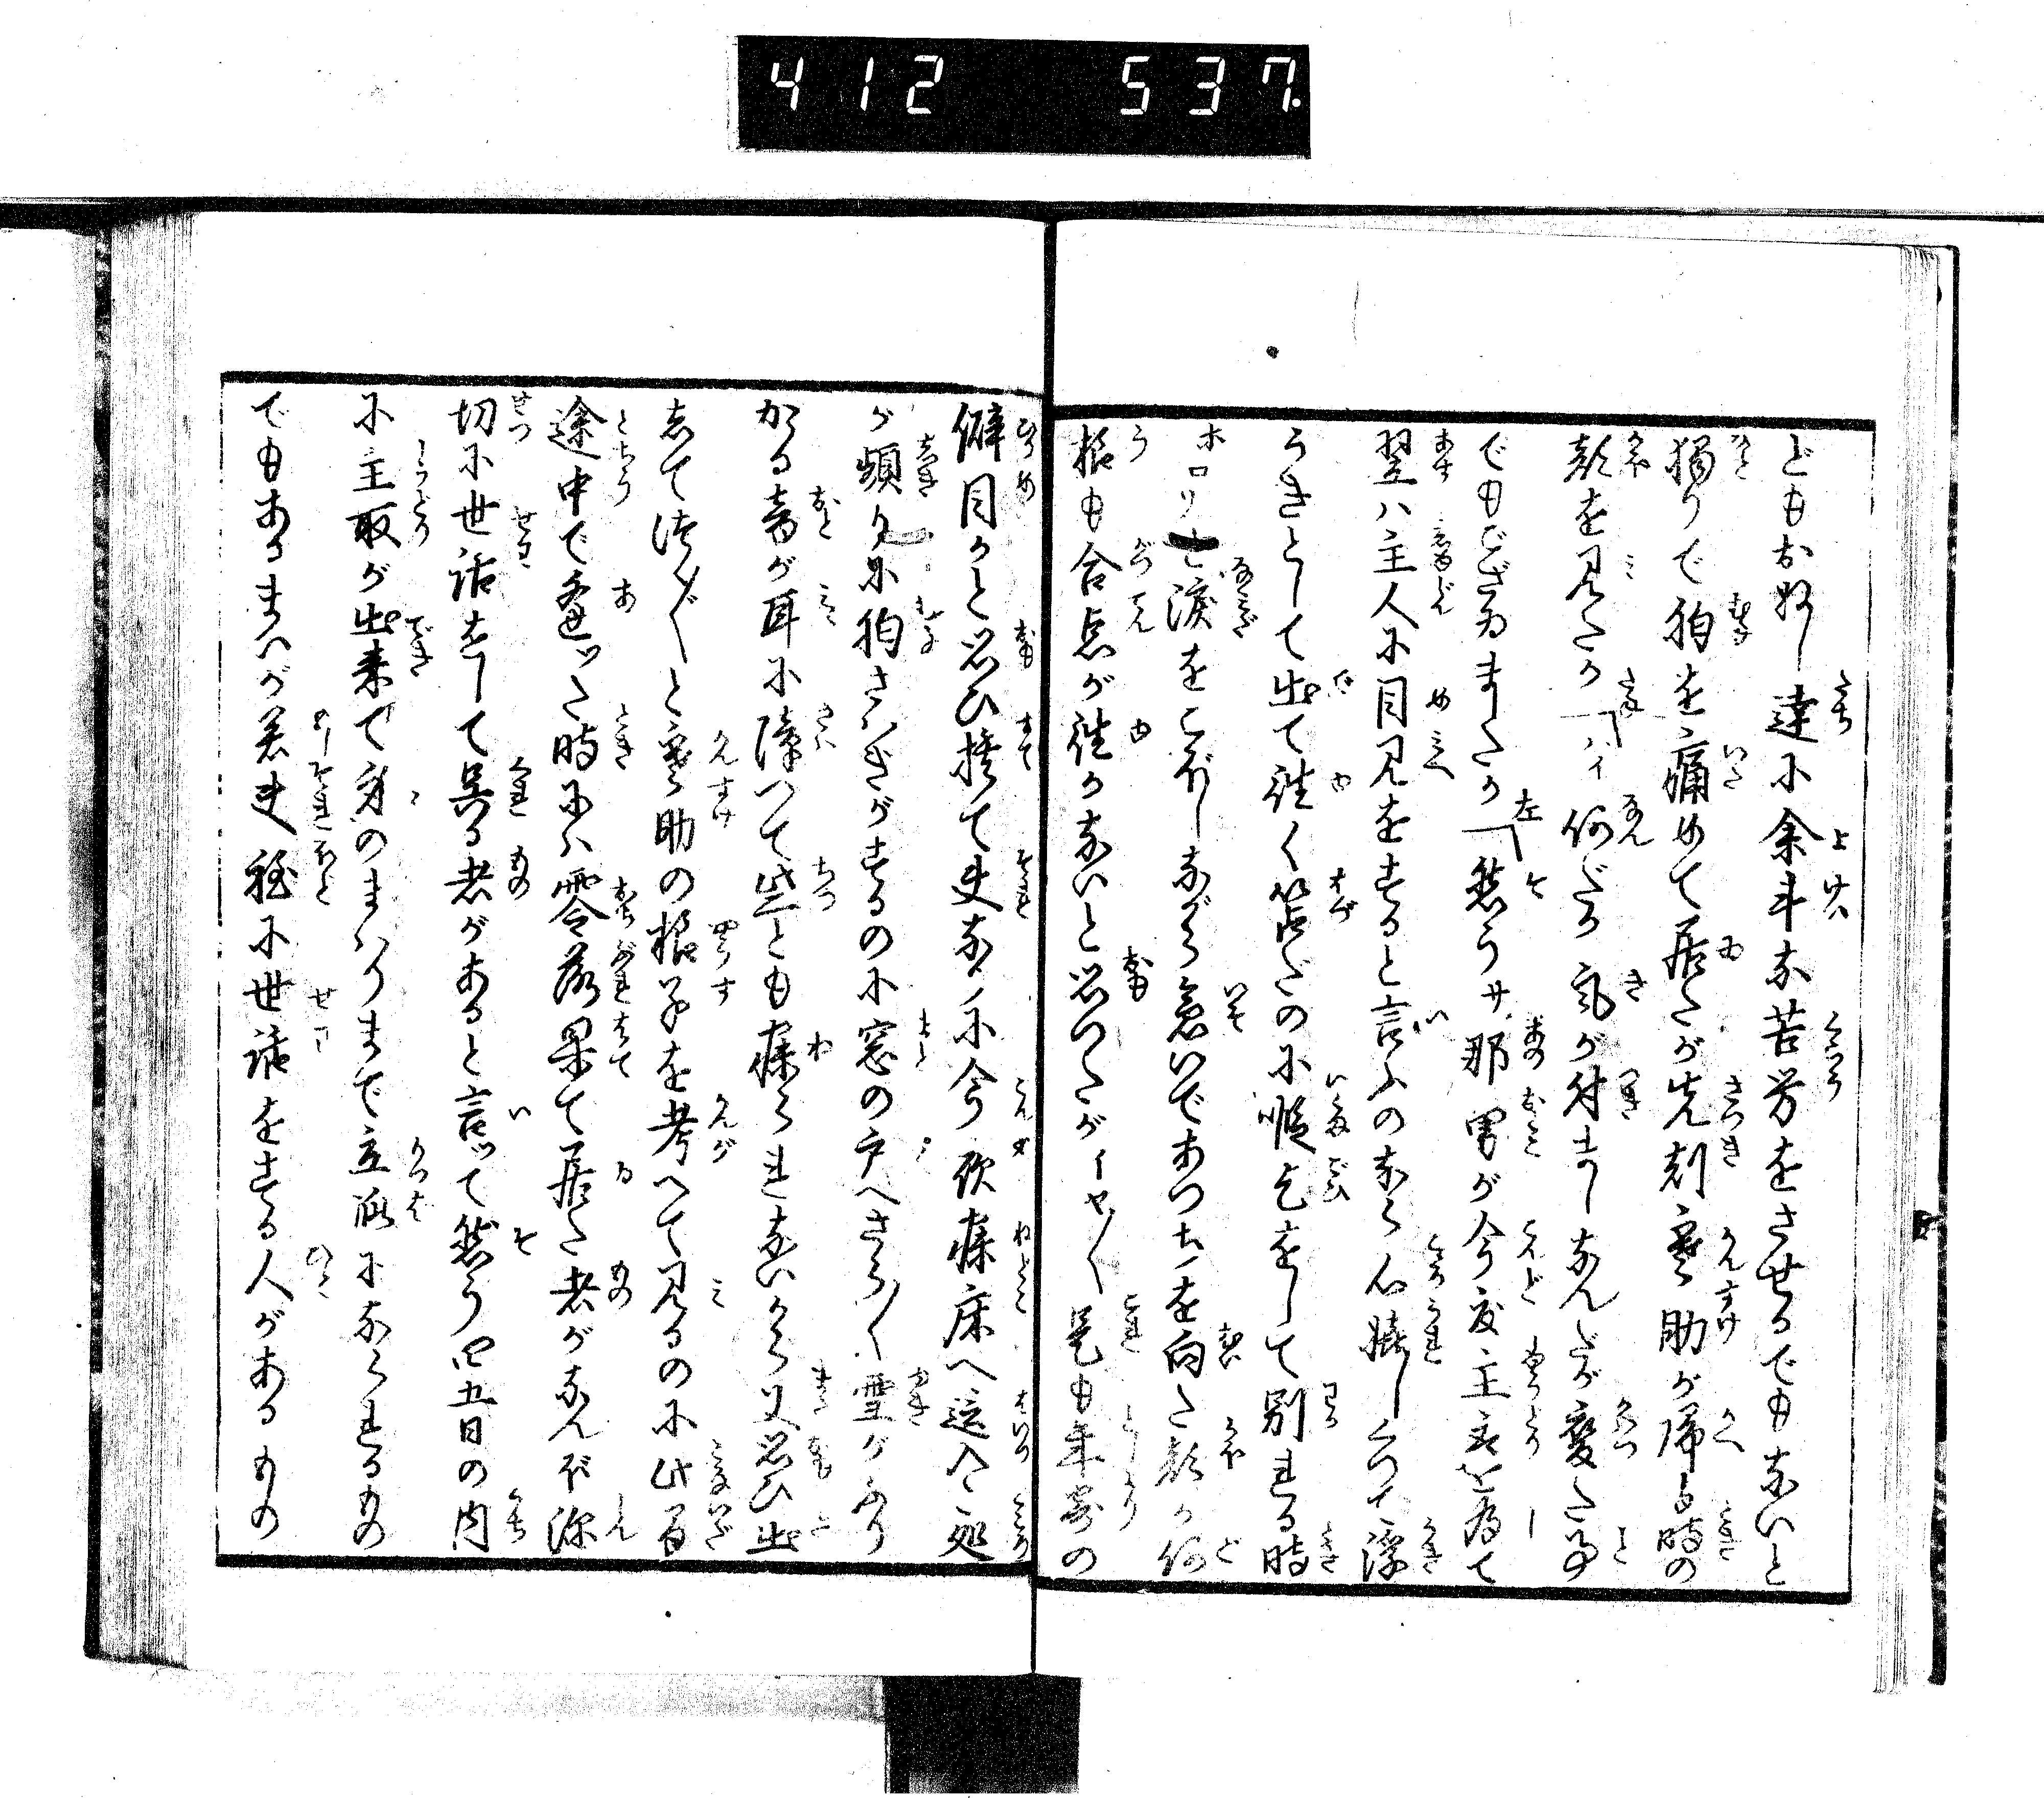 412 537.
どもお好し達に余斗な苦労をさせるでもないと
獨りで胸を痛めて居たが先刻勘助が帰る時の
顔を見たか「ハイ何だか気が付ましなんだが変た事
でもござゐましたか左「然うサ那男が今度主取を為て
翌ハ主人に目見をすると言ふのなら心嬉しくつて浮
うきとして出て往く筈だのに暇乞をして別れる時
ホロリと涙をこぼしながら急いであつちを向た顔か何
様も合点が往かないと思つたがイヤ〳〵是も年寄の
僻目かと思ひ捨て夫なりに今夜寐床へ這入た処
が頻りに胸さハぎがするのに窓の戸へさら〳〵雪がふり
かる音が耳に障つて些とも寐られないから又思ひ出
して つく〴〵と勘助の様子を考へて見るのに此間
途中で逢ッた時にハ零落果て居た者がなんぼ深
切に世話をして呉る者があると言ッて然う四五日の内
に主取が出来て身のまハりまで立派になられるもの
でもあるまいが若夫程に世話をする人があるもの